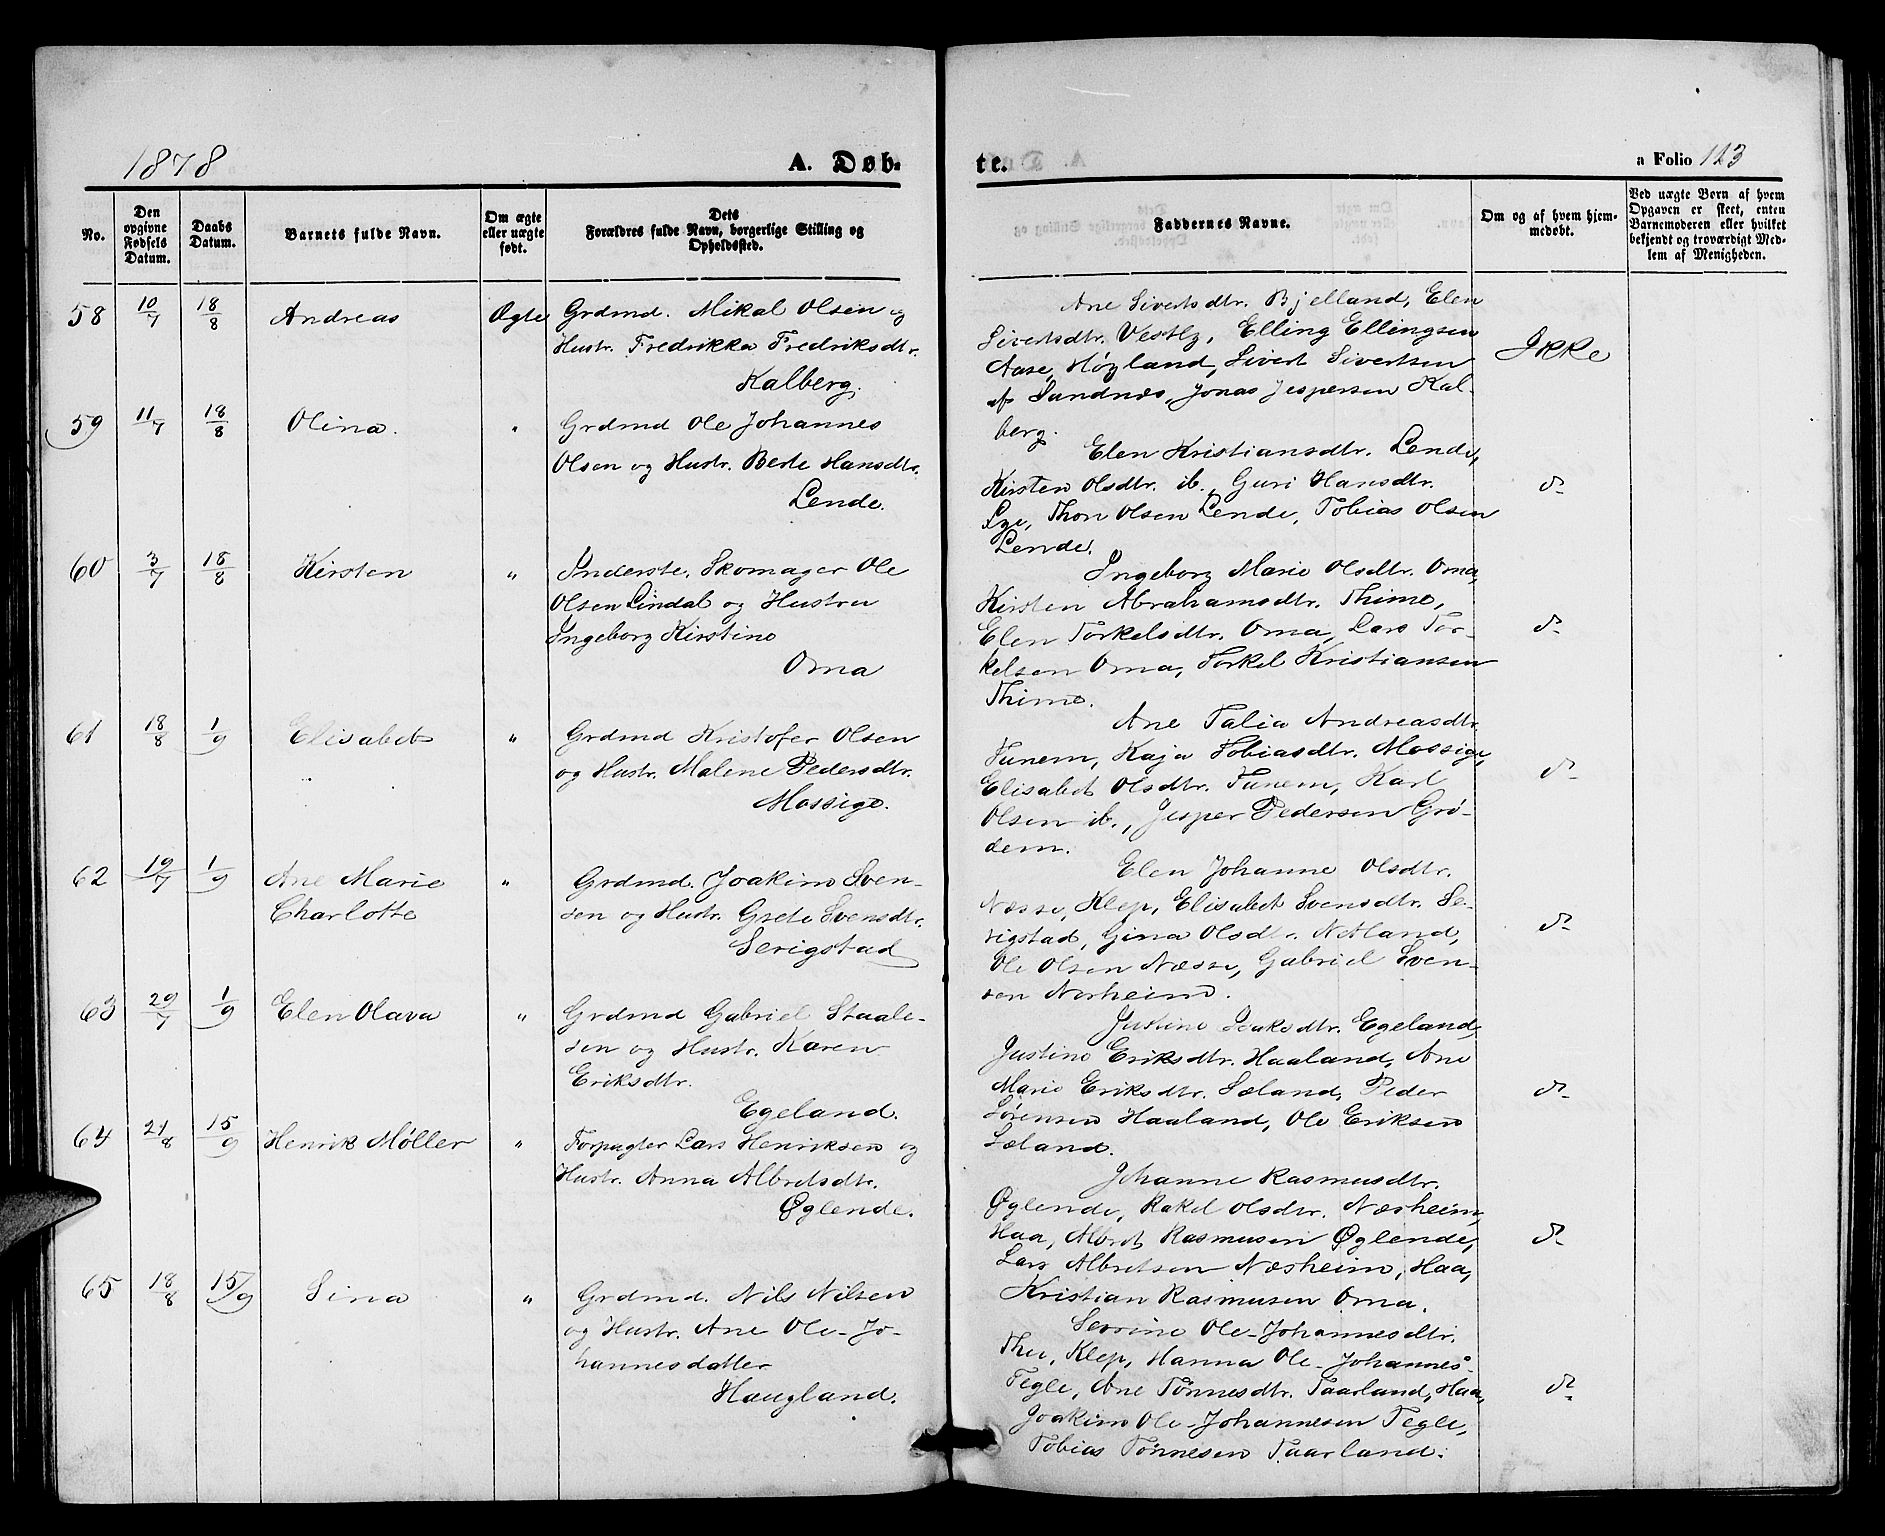 1878
A. Døb-
te.
a Folio 123
No.
Den
opgivne
Fødsels
Datum.
Daabs
Datum.
Barnets fulde Navn.
Om ægte
eller uægte
født.
Dets
Forældres fulde Navn, borgerlige Stilling og
Opholdssted.
Faddernes Navne.
Om og af hvem hjem-
medøbt.
Ved uægte Børn af hvem
Opgaven er skeet, enten
Barnemoderen eller hvilket
bekjendt og troværdigt Med-
lem af Menigheden.
58 10/7 18/8 Andreas Ægte Grdmd. Mikal Olsen og
Hustr. Fredrikka Fredriksdtr.
Kalberg.
Ane Sivertsdtr. Bjelland, Elen
Sivertsdtr. Vestly, Elling Ellingsen
Aase, Høyland, Sivert Sivertsen
af Sandnes, Jonas Jespersen Kal-
berg.
Ikke
59 11/7 18/8 Olina. " Grdmd Ole Johannes
Olsen og Hustr. Berte Hansdtr.
Lende.
Elen Kristiansdtr. Lende,
Kirsten Olsdtr. ib., Guri Hansdtr.
Lye, Thon Olsen Lende, Tobias Olsen
Lende.
do
60 3/7 18/8 Kirsten " Inderste, Skomager Ole
Olsen Lindal og Hustru
Ingeborg Kirstine
Oma
Ingeborg Marie Olsdtr. Oma,
Kirsten Abrahamsdtr. Thime,
Elen Torkelsdtr. Oma, Lars Tor-
kelsen Oma, Torkel Kristiansen
Thime.
do
61 18/8 1/9 Elisabet " Grdmd Kristofer Olsen
og Hustr. Malene Pedersdtr.
Mossige.
Ane Talia Andreasdtr.
Tunem, Kaja Tobiasdtr. Mossige,
Elisabet Olsdtr. Tunem, Karl
Olsen ib., Jesper Pedersen Grø-
dem.
do
62 19/7 1/9 Ane Marie
Charlotte
" Grdmd. Joakim Sven-
sen og Hustr. Grete Svensdtr.
Serigstad
Elen Johanne Olsdtr.
Næsse, Klep, Elisabet Svensdtr. Se-
rigstad, Gina Olsdtr. Netland,
Ole Olsen Næsse, Gabriel Sven-
sen Norheim.
do
63 29/7 1/9 Elen Olava " Grdmd Gabriel Staale-
sen og Hustr. Karen
Eriksdtr.
Egeland.
Justine Isaksdtr. Egeland,
Justine Eriksdtr. Haaland, Ane
Marie Eriksdtr. Sæland, Peder
Sørensen Haaland, Ole Eriksen
Sæland.
do
64 21/8 15/9 Henrik Møller " Forpagter Lars Henriksen og
Hustr. Anna Albretsdtr.
Øglende.
Johanne Rasmusdtr.
Øglende, Rakel Olsdtr. Næsheim,
Haa, Albret Rasmusen Øglende,
Lars Albretsen Næsheim, Haa,
Kristian Rasmusen Oma.
do
65 18/8 15/9 Sina " Grdmd. Nils Nilsen
og Hustr. Ane Ole-Jo-
hannesdatter
Haugland.
Serrine Ole-Johannesdtr.
Thu, Klep, Hanna Ole-Johannes-
Tegle, Ane Tønnesdtr. Taarland, Haa,
Joakim Ole-Johannesen Tegle,
Tobias Tønnesen Taarland.
do